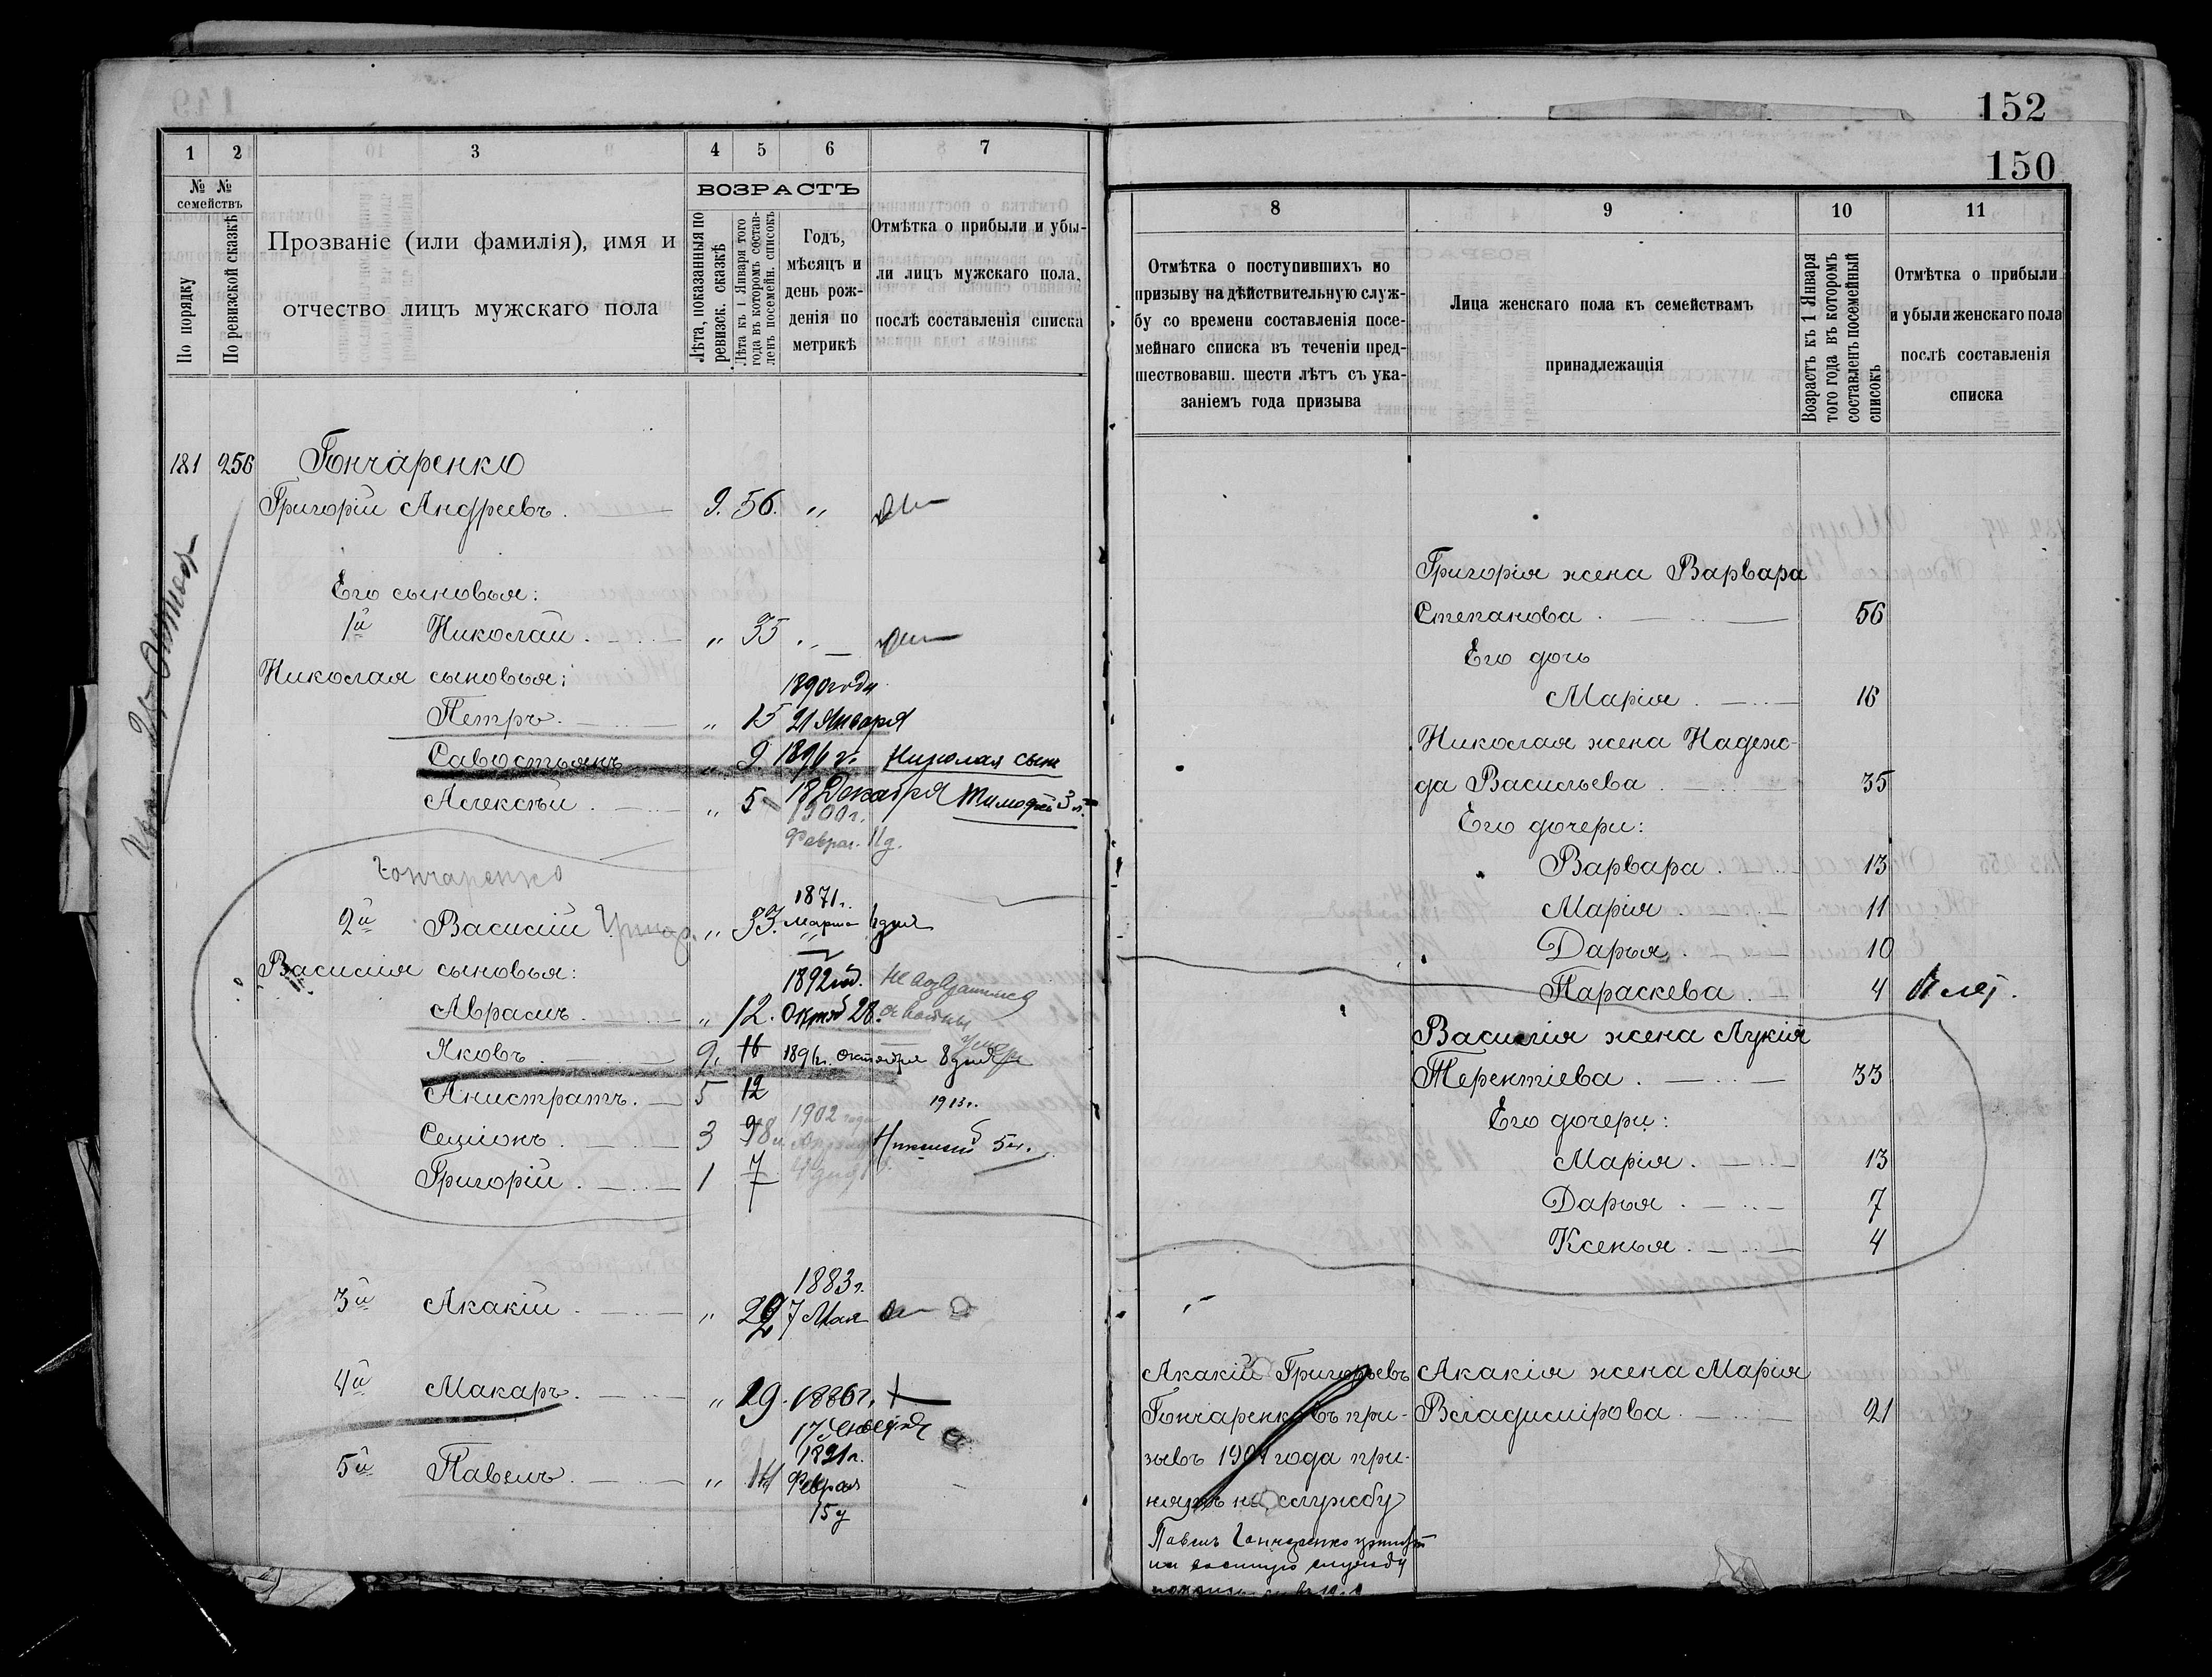 152
150
1 2 3 4 5 6 7
№ № семействъ
По порядку
По ревизской сказкѣ
Прозваніе (или фамилія), имя и
отчество лицъ мужскаго пола
ВОЗРАСТЪ
Лѣта, показанныя по
ревизск. сказкѣ
Лѣта къ 1 Января того
года въ которомъ состав-
ленъ посемейн. списокъ
Годъ,
мѣсяцъ и
день рож-
денія по
метрикѣ
Отмѣтка о прибыли и убы-
ли лицъ мужскаго пола,
послѣ составленія списка
181 256 Гончаренко
Григорій Андреевъ. 9. 56. "
Его сыновья:
1й Николай. " 35 "
Николая сыновья:
1890 года
Петръ. " 15 21 Января
Савостьянъ " 9. 1896 г. Николая сын
18 Декабря Тимофей 3 л.
Алексѣй. " 5
1900 г.
Феврал. 11 д.
Гончаренко
1871 г.
2й Василій Григор. " 33. Марта 1 дня
Василія сыновья:
1892 год.
Аврамъ. " 12. Октяб 28.
Яковъ. 9. 16 1896 г. Октября 8 дня
Анистратъ. 5 12
1902 года 1913 г.
Семіонъ. 3 9 Никой 5 л.
Григорій. 1 7
1883 г.
3й Акакій. " 22 7 Мая
4й Макаръ. " 19. 1886 г.
17
1891 г.
5й Павелъ. " 14 Феврал
15 д
8 9 10 11
Отмѣтка о поступившихъ по
призыву на дѣйствительную служ-
бу со времени составленія посе-
мейнаго списка въ теченіи пред-
шествовавш. шести лѣтъ съ ука-
заніемъ года призыва
Лица женскаго пола къ семействамъ
принадлежащія
Возрастъ къ 1 Января
того года въ которомъ
составленъ посемейный
списокъ
Отмѣтка о прибыли
и убыли женскаго пола
послѣ составленія
списка
Григорія жена Варвара
Степанова. 56
Его дочь
Марія. 16
Николая жена Надеж-
да Васильева. 35
Его дочери:
Варвара. 13
Марія 11
Дарья. 10
Параскева. 4 11 лѣт.
Василія жена Лукія
Терентіева. 33
Его дочери:
Марія. 13
Дарья. 7
Ксенья. 4
Акакій Григорьевъ
Гончаренко въ при-
зывъ 1904 года при-
нятъ на службу
Павелъ Гончаренко принят
на военную службу
Акакія жена Марія
Владимірова. 21